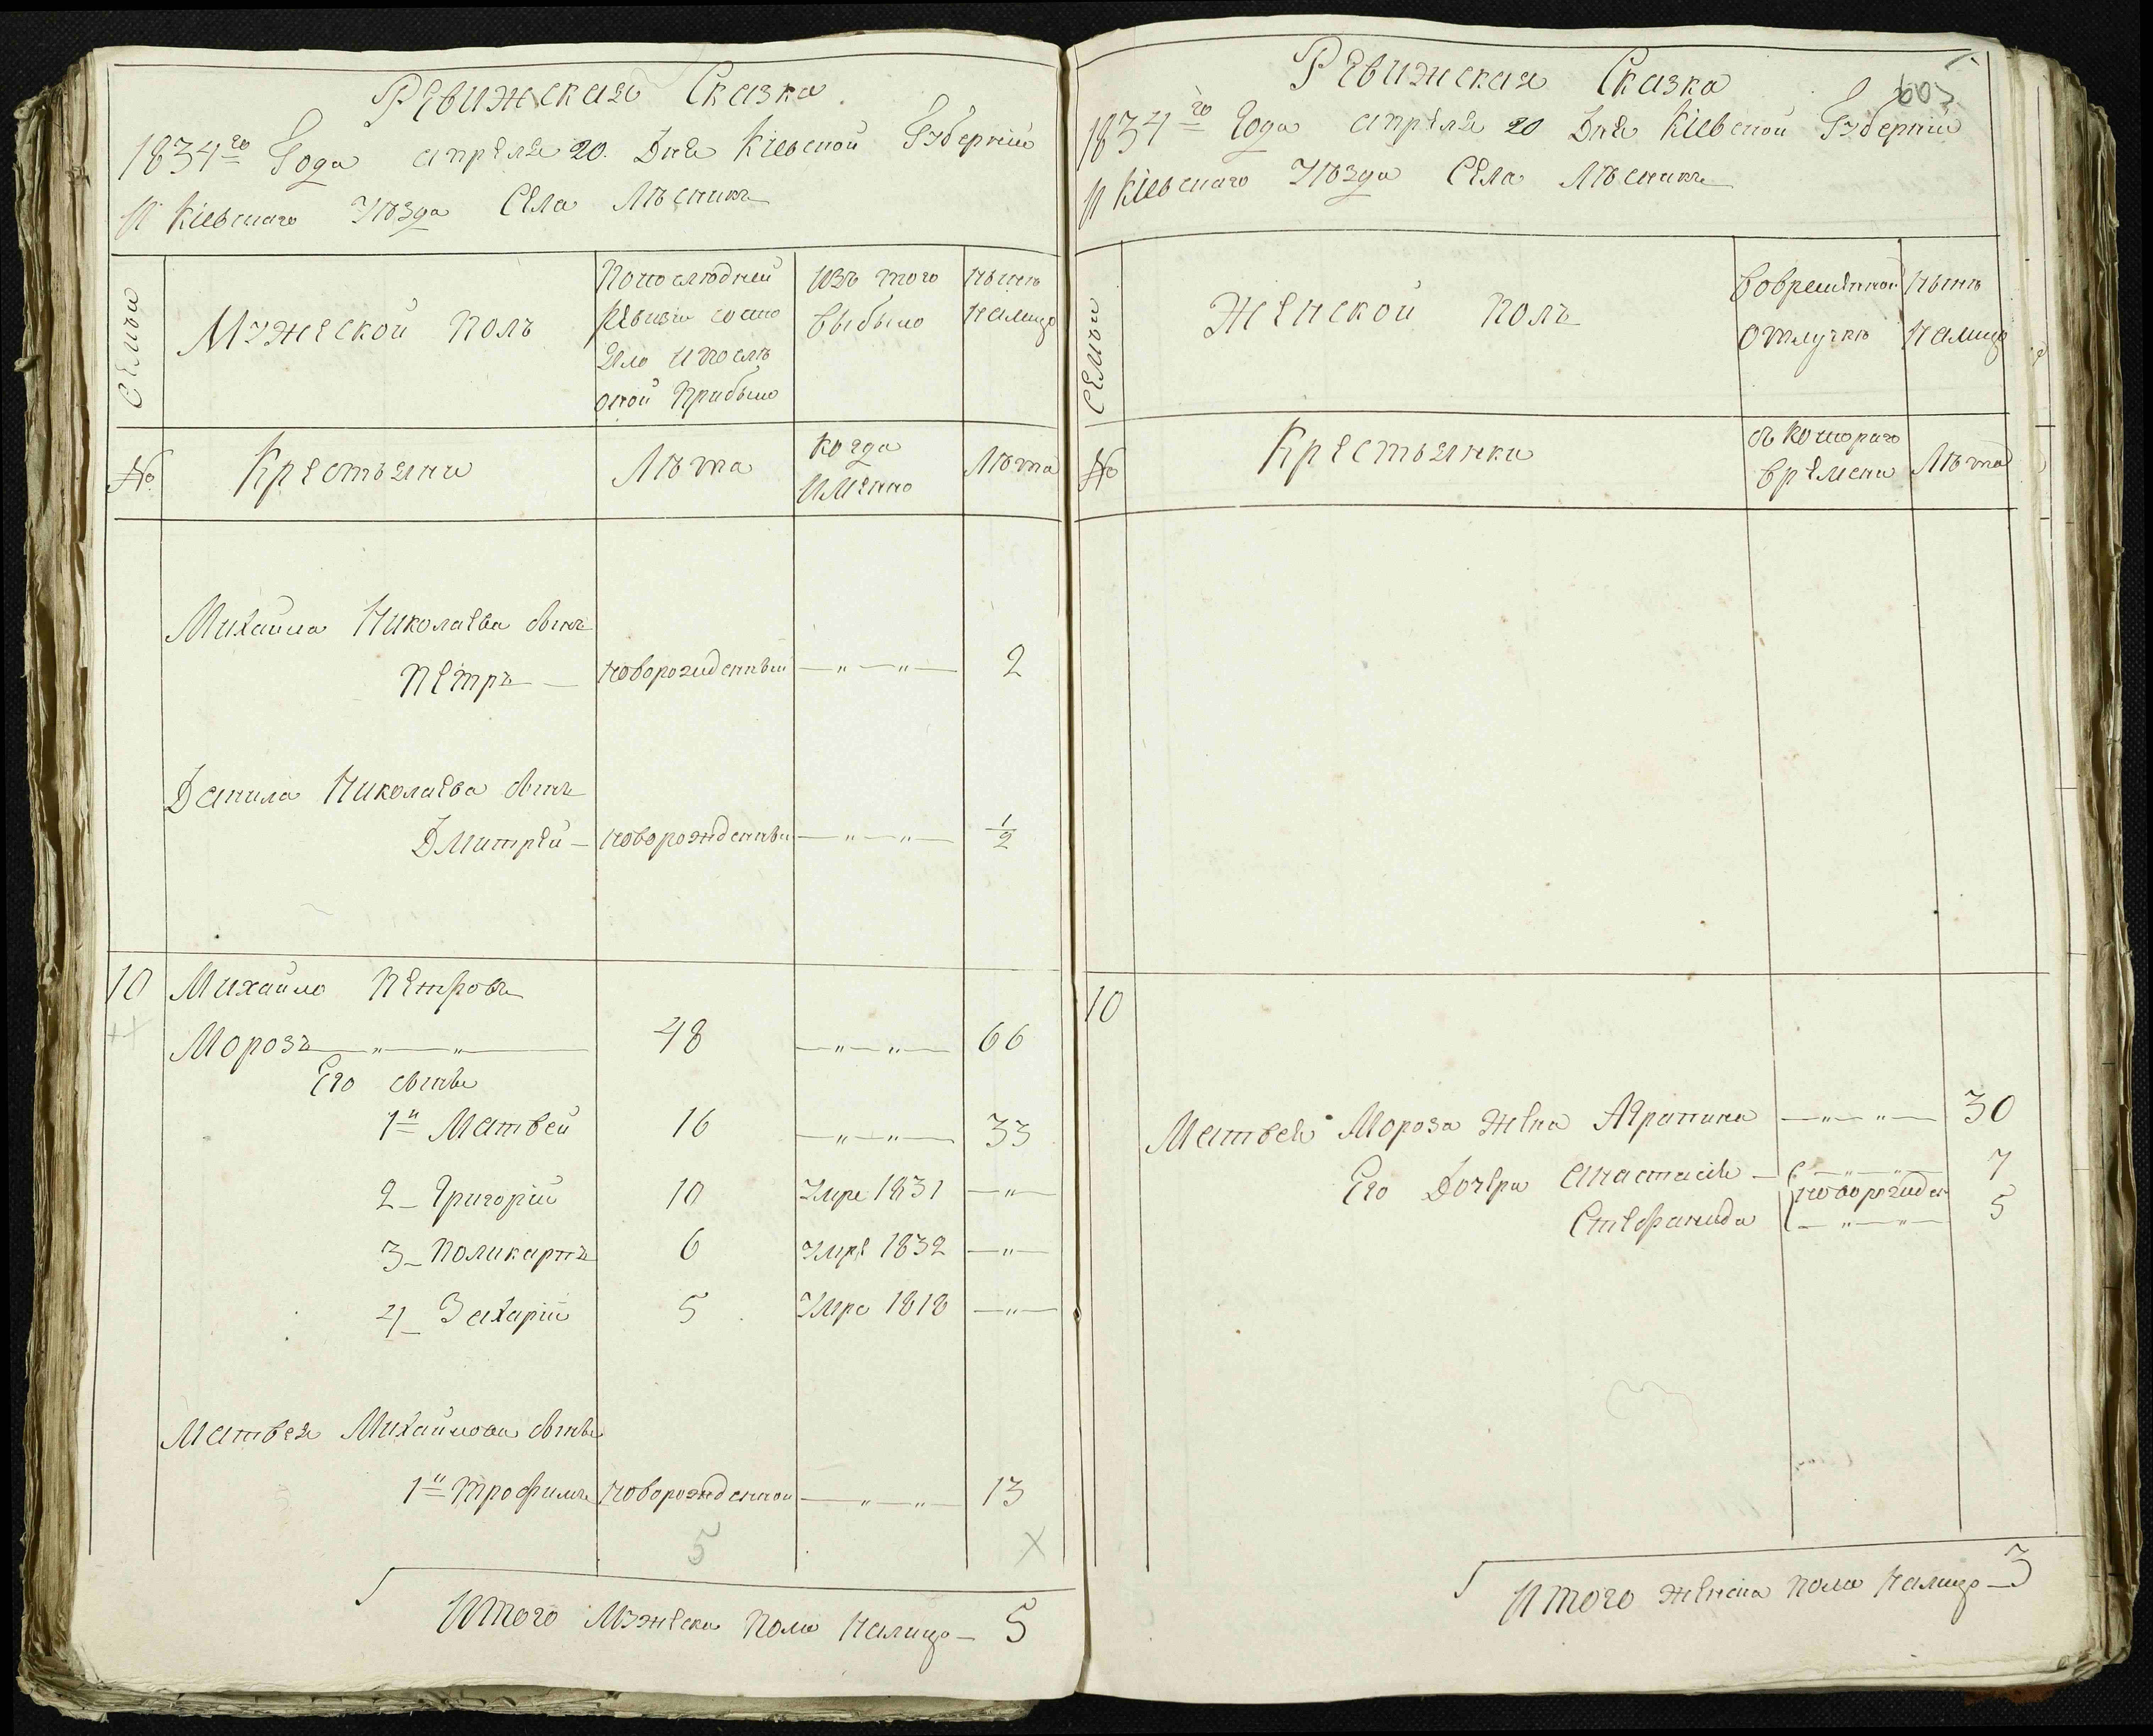 Ревижская Сказка
1834го Года апреля 20. Дня Кіевской Губерніи
И Кіевскаго Уѣзда Села Лѣсникъ
Семьи
Мужеской полъ
По последней
ревизіи состо
яло и послѣ
оной прибыло
изъ того
выбыло
нынѣ
налицо
№
Крестьяни
Лѣта
когда
именно
Лѣта
Михайла Николаева сынъ
Петръ — новорожденный — " — " — 2
Данила Николаева сынъ
Дмитрей — новорожденный — " — " — 1/2
10 Михайло Петровъ
Морозъ — " — " — 48 — " — " — 66
Его сыны
1й Матвей 16 — " — " — 33
2 — Григорій 10 Умре 1831 — " —
3 — Поликарпъ 6 Умре 1832 — " —
4 — Захарій 5 Умре 1818 — " —
Матвея Михайлова сыны
1й Трофимъ новорожденной — " — " — 13
5 X
Итого Мужеска пола налицо — 5
603
Ревижская Сказка
1834го Года апреля 20 Дня Кіевской Губерніи
И Кіевскаго Уѣзда Села Лѣсникъ
Семьи
Женской полъ
Во временной
отлучкѣ
нынѣ
налицо
№
Крестьянки
съ котораго
времени
Лѣта
10
Матвея Мороза жена Агрипина — " — " — 30
Его Дочери Анастасія — " — " — 7
новорожден
Стефанида — " — " — 5
Итого женска пола налицо — 3